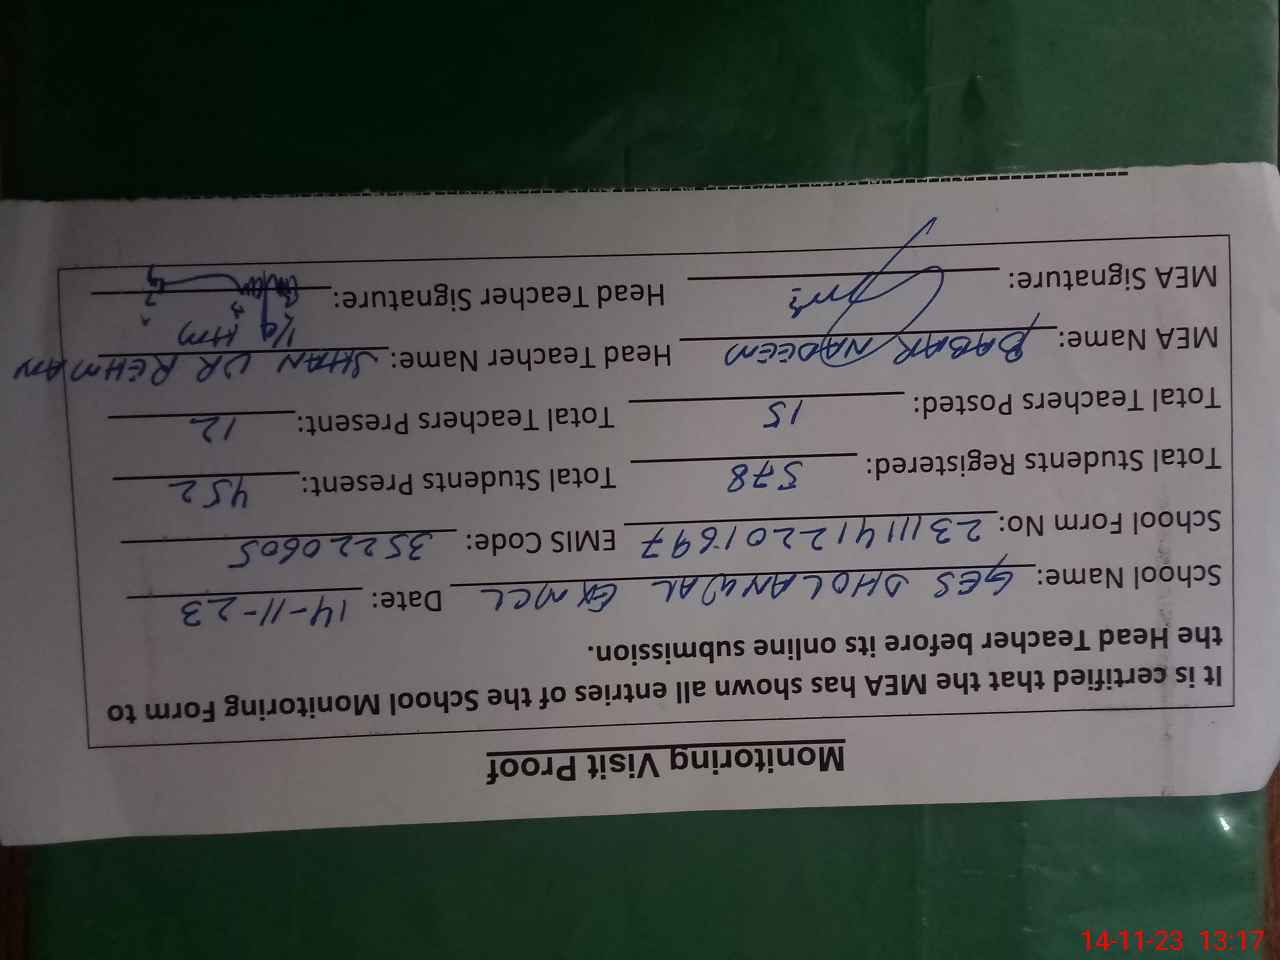 Monitoring Visit Proof
It is certified that the MEA has shown all entries of the School Monitoring Form to
the Head Teacher before its online submission.
School Name: GES DHOLANWAL EX MCL Date: 14-11-23
School Form No: 231114122201697 EMIS Code: 35220605
Total Students Registered: 578 Total Students Present: 452
Total Teachers Posted: 15 Total Teachers Present: 12
MEA Name: BABAR NADEEM Head Teacher Name: SHAN UR REHMAN
I/q HM
MEA Signature: Head Teacher Signature:
14-11-23 13:17